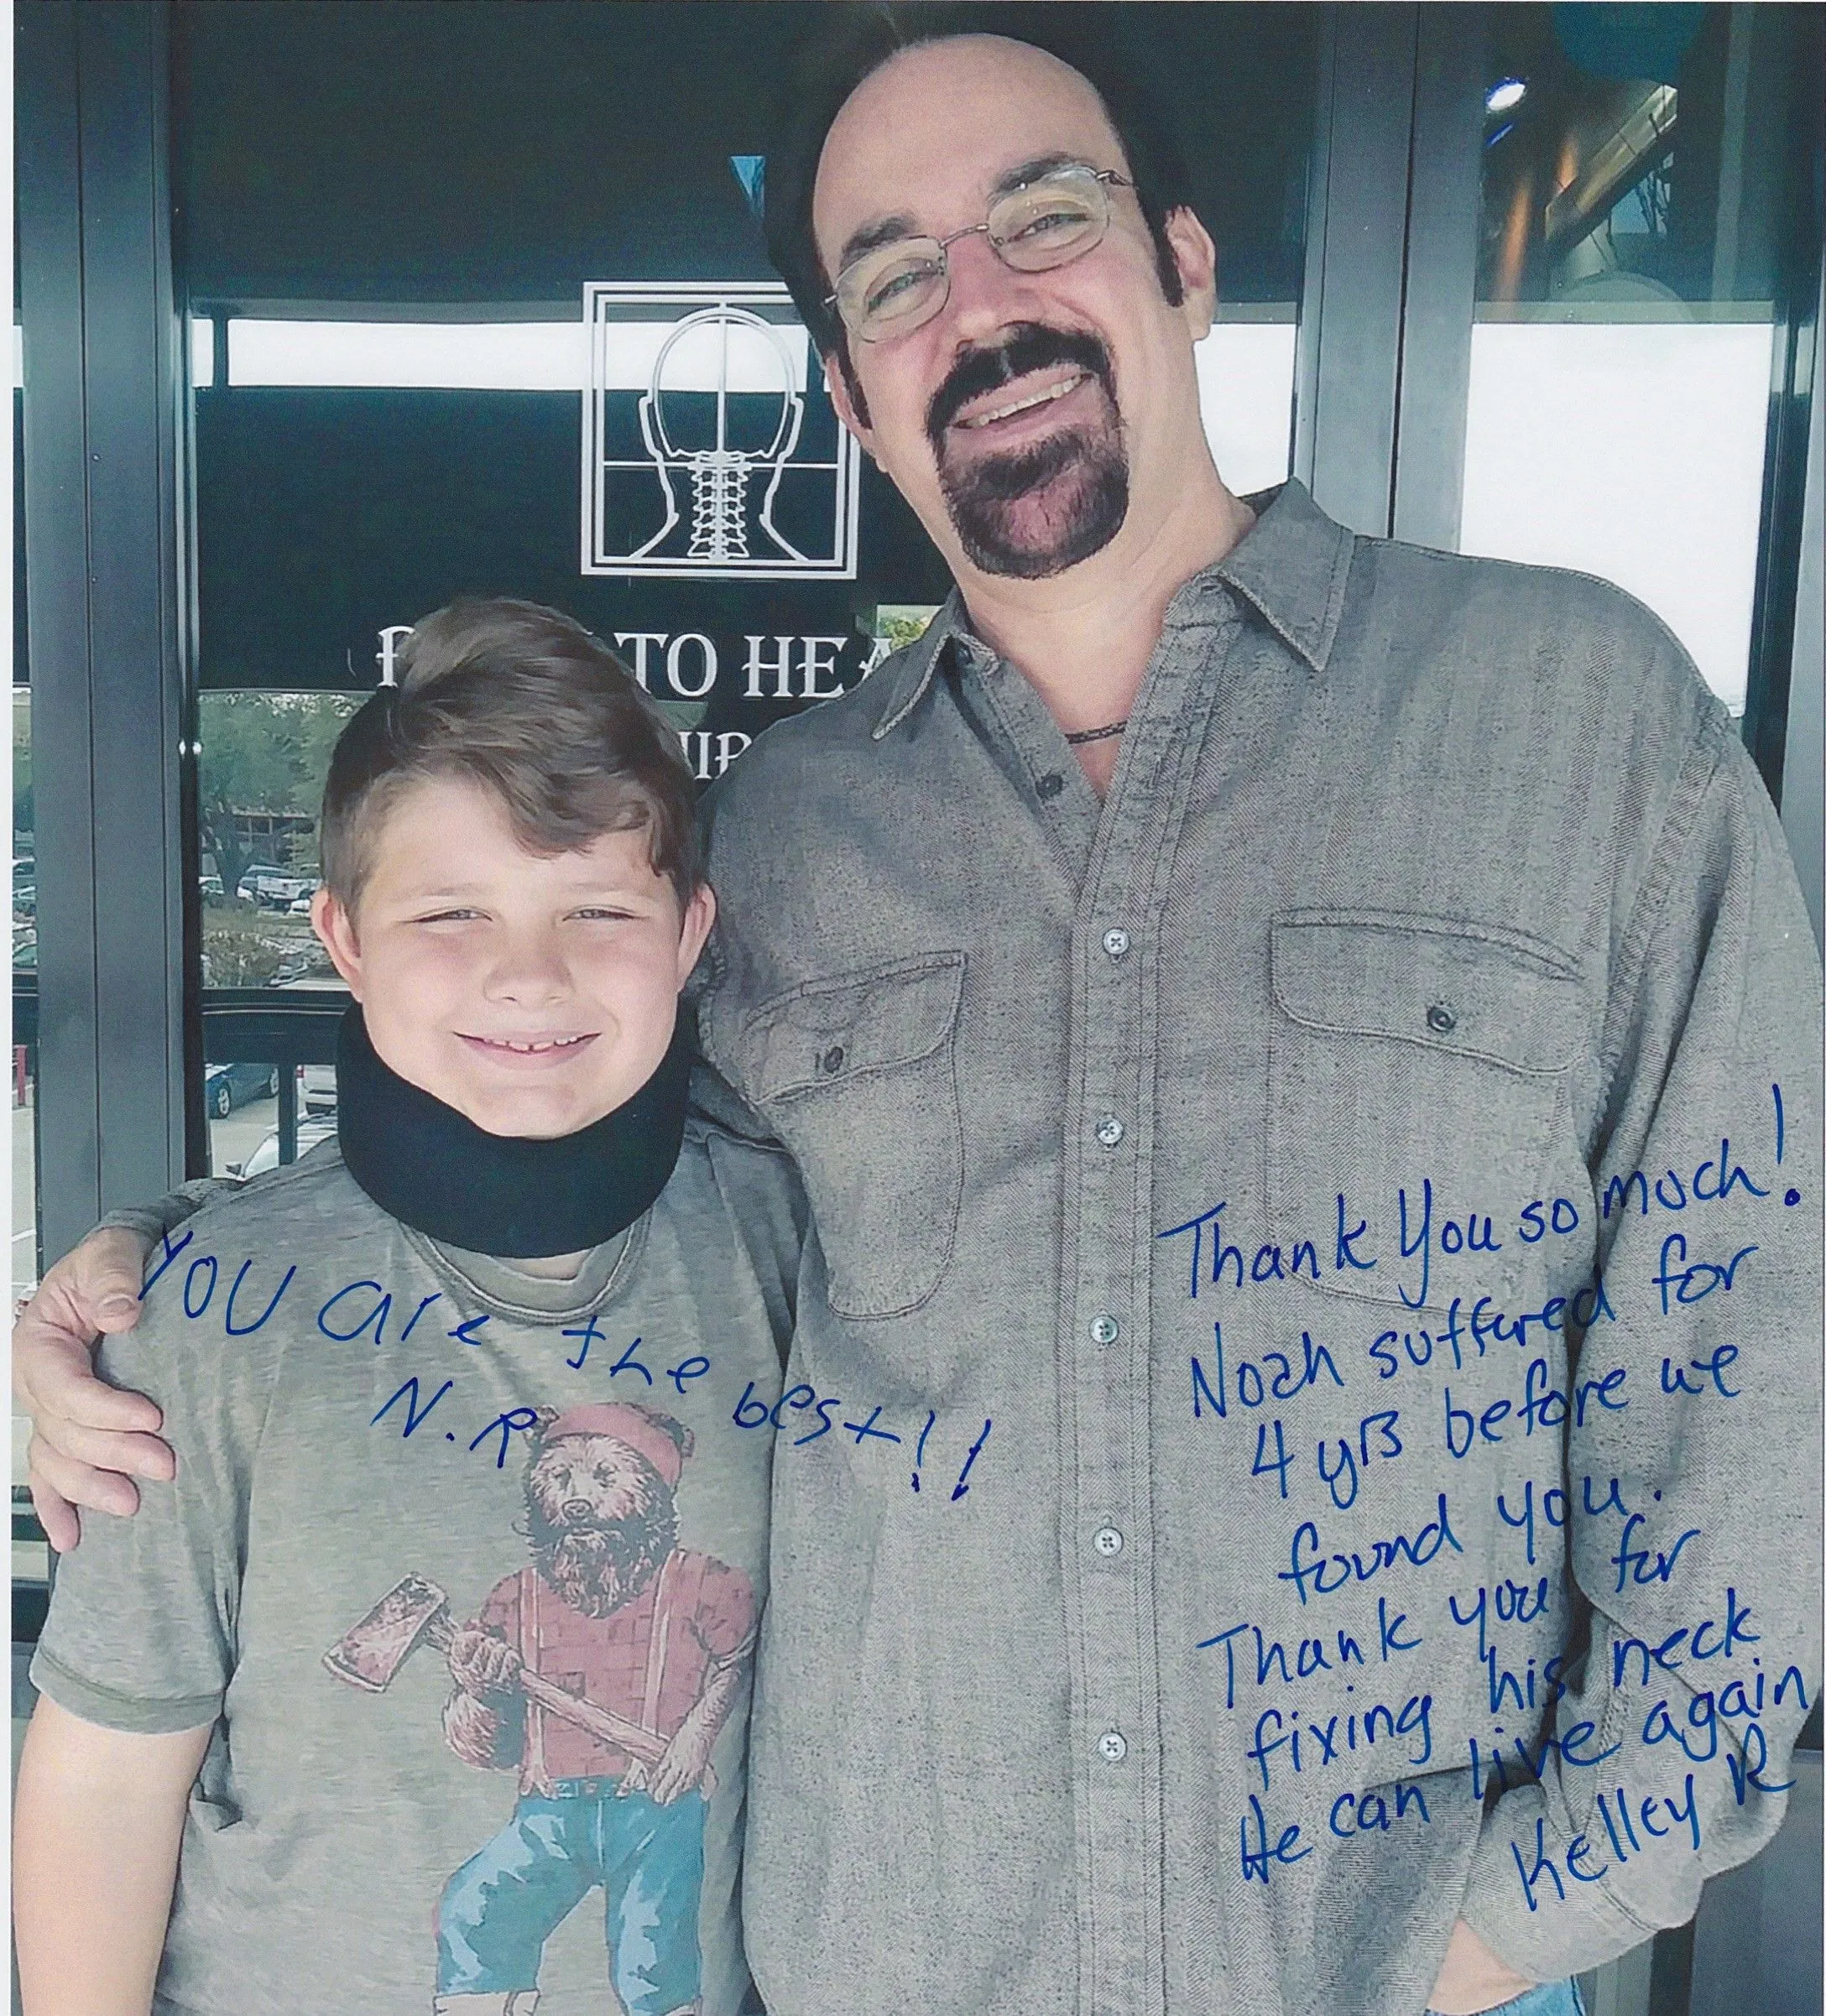 TO HEA
YOU are the best!!
N.R
Thank You so much!
Noah suffered for
4 yrs before we
found you.
Thank you for
fixing his neck
He can live again
Kelley R